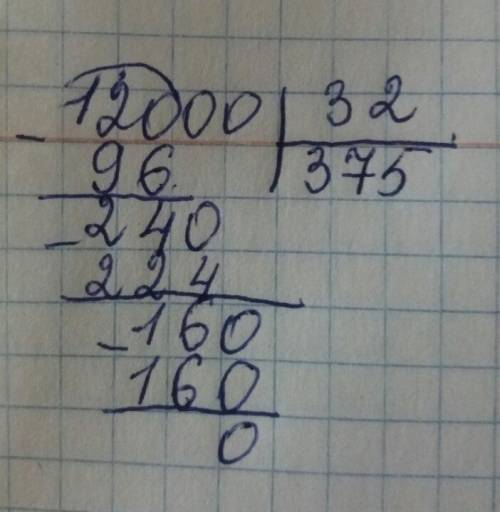 12000 32
- 96 375
-240
224
-160
160
0